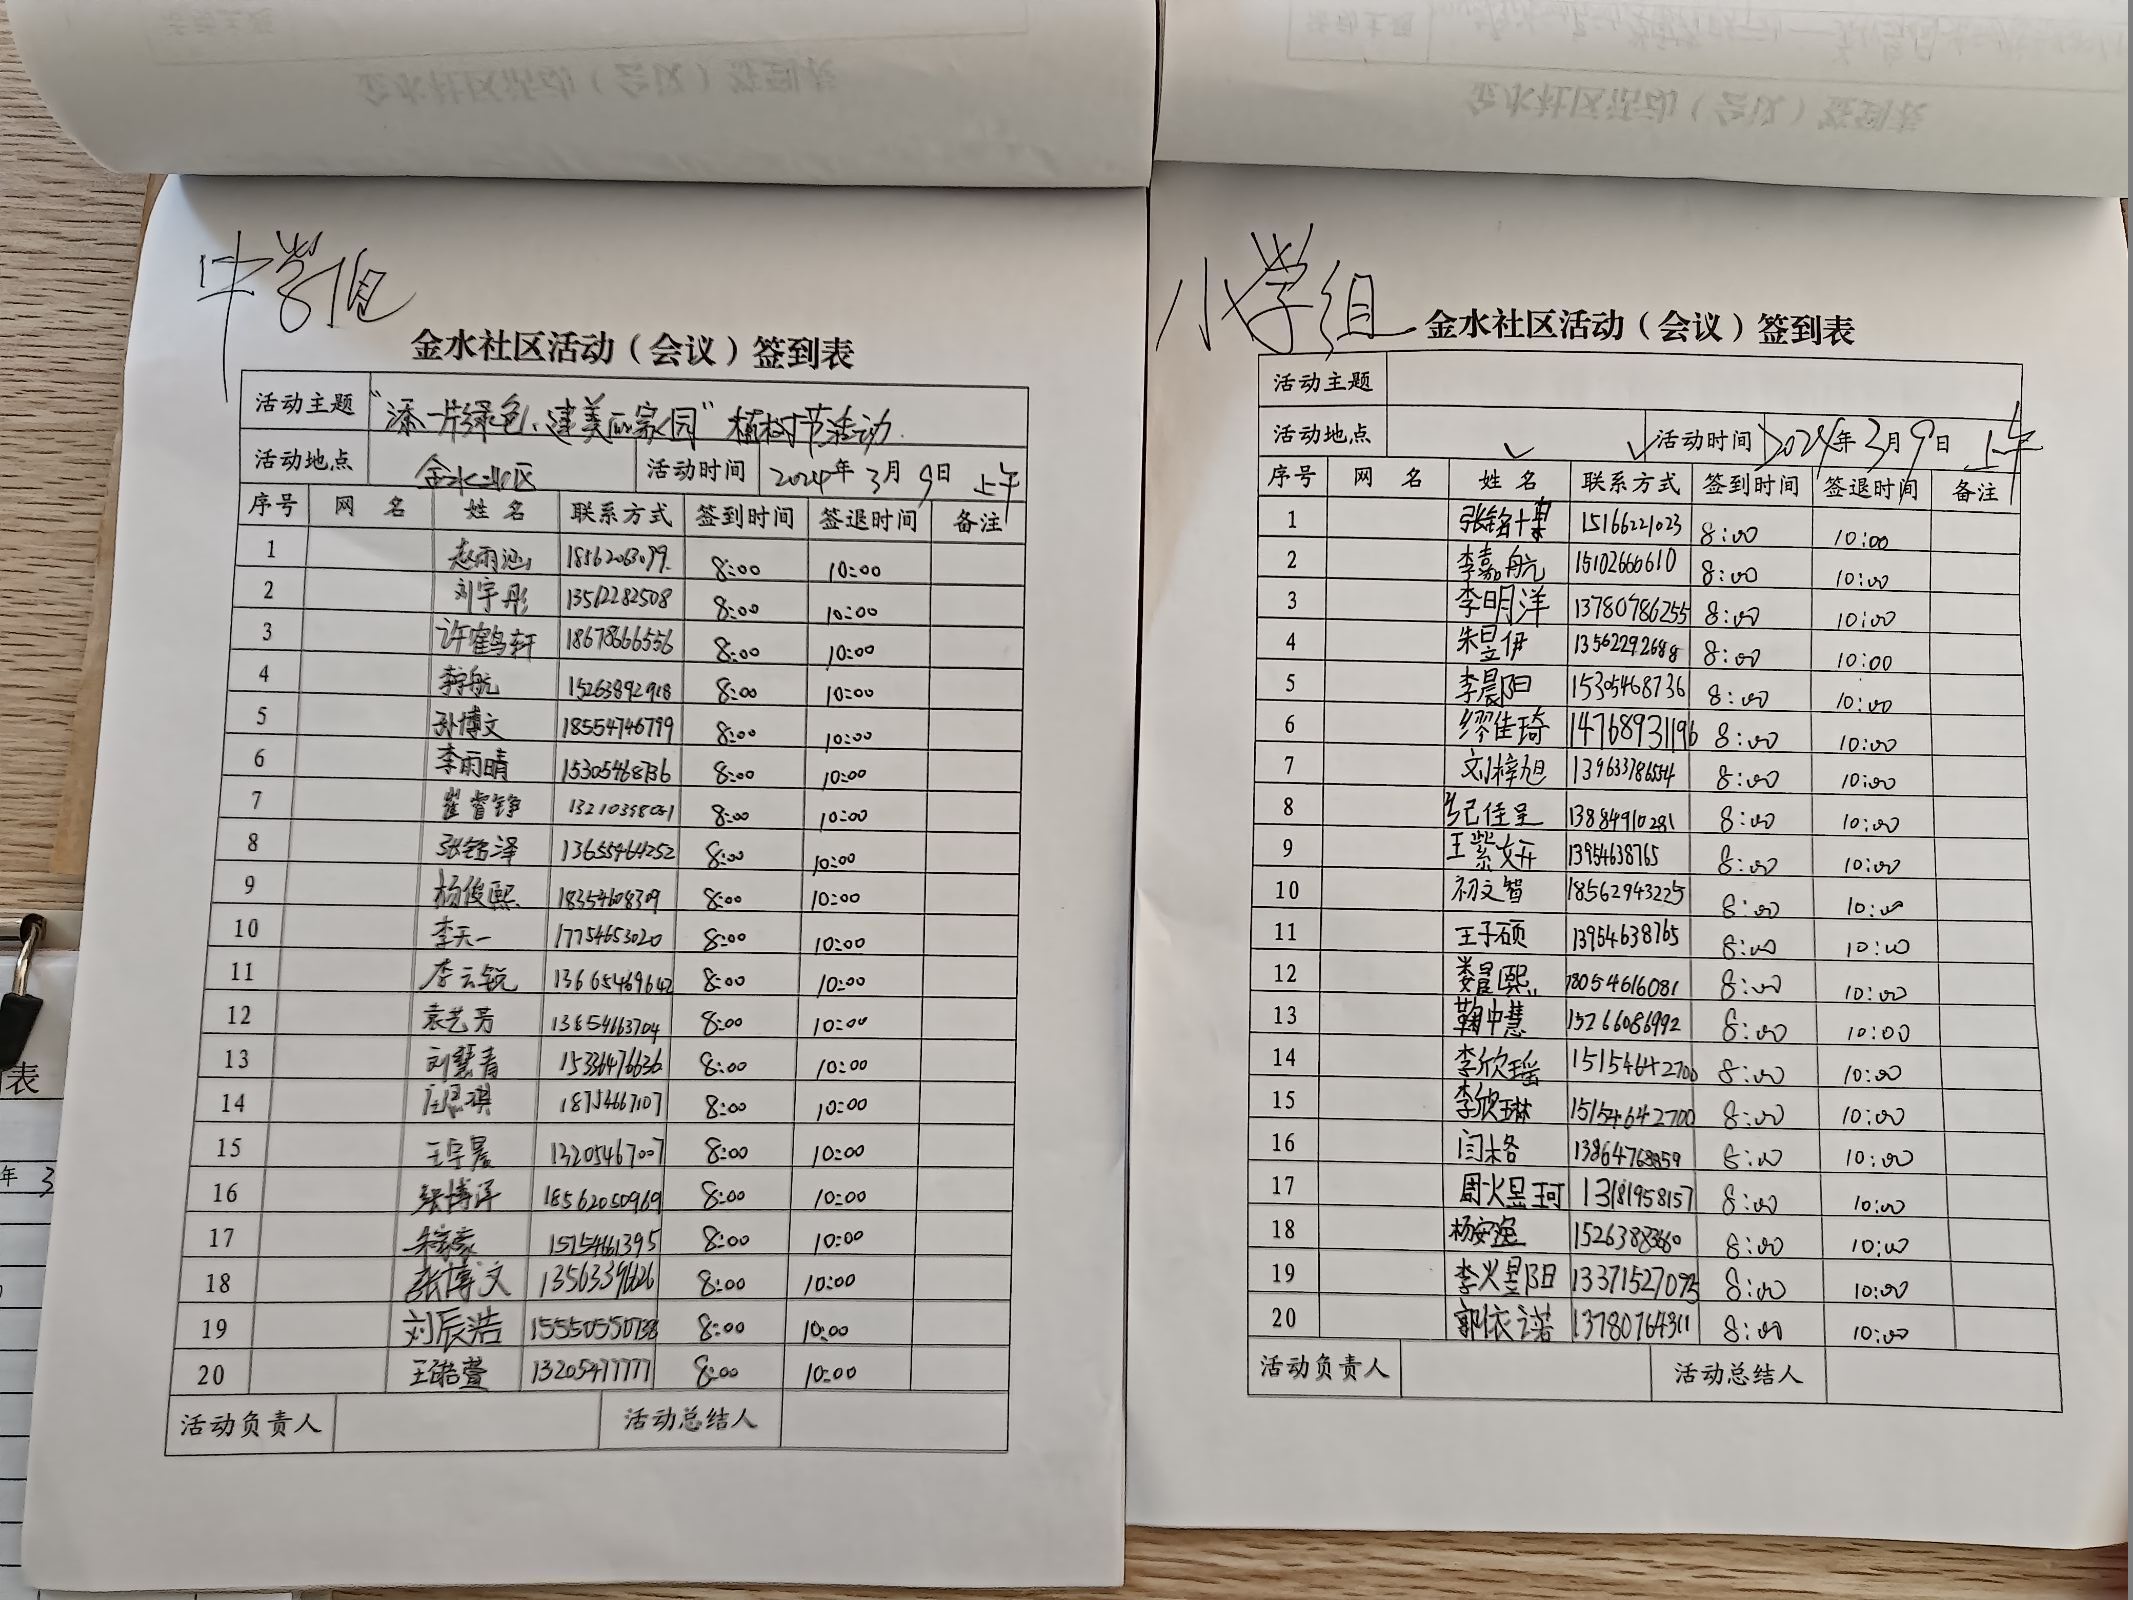 中学组
金水社区活动（会议）签到表
活动主题 “添一片绿色、建美丽家园”植树节活动
活动地点 金水社区 活动时间 2024年 3月 9日 上午
序号 网 名 姓 名 联系方式 签到时间 签退时间 备注
1 赵雨涵 8:00 10:00
2 刘宇彤 13512282508 8:00 10:00
3 许鹤轩 18678666556 8:00 10:00
4 李航 15263892918 8:00 10:00
5 孙博文 18554746799 8:00 10:00
6 李雨晴 15305468736 8:00 10:00
7 8:00 10:00
8 张铭泽 13655464252 8:00 10:00
9 杨俊熙 18354608309 8:00 10:00
10 李天一 17754653020 8:00 10:00
11 李云锐 13665469642 8:00 10:00
12 袁艺芳 13854663704 8:00 10:00
13 刘慧青 15336476636 8:00 10:00
14 18754667107 8:00 10:00
15 王宇晨 13205467007 8:00 10:00
16 张博洋 18562050969 8:00 10:00
17 15154661395 8:00 10:00
18 张博文 13563396626 8:00 10:00
19 刘辰浩 15550550738 8:00 10:00
20 王皓萱 13205477777 8:00 10:00
活动负责人 活动总结人
小学组
金水社区活动（会议）签到表
活动主题
活动地点 活动时间 2024年 3月 9日 上午
序号 网 名 姓 名 联系方式 签到时间 签退时间 备注
1 张铭 15166221023 8:00 10:00
2 李嘉航 15102666610 8:00 10:00
3 李明洋 13780786255 8:00 10:00
4 朱昱伊 13562292688 8:00 10:00
5 李晨阳 15305468736 8:00 10:00
6 缪佳琦 14768931196 8:00 10:00
7 刘梓旭 139633786554 8:00 10:00
8 纪佳呈 13884910281 8:00 10:00
9 王紫妍 13954638765 8:00 10:00
10 初文智 18562943225 8:00 10:00
11 王子硕 13954638765 8:00 10:00
12 娄晨熙 18054616081 8:00 10:00
13 鞠中慧 15266086992 8:00 10:00
14 李欣瑶 15154642700 8:00 10:00
15 李欣琳 15154642700 8:00 10:00
16 闫格 13864768859 8:00 10:00
17 周煜珂 13181958157 8:00 10:00
18 杨安逸 15263883660 8:00 10:00
19 李煜阳 13371527095 8:00 10:00
20 郭依诺 13780764311 8:00 10:00
活动负责人 活动总结人